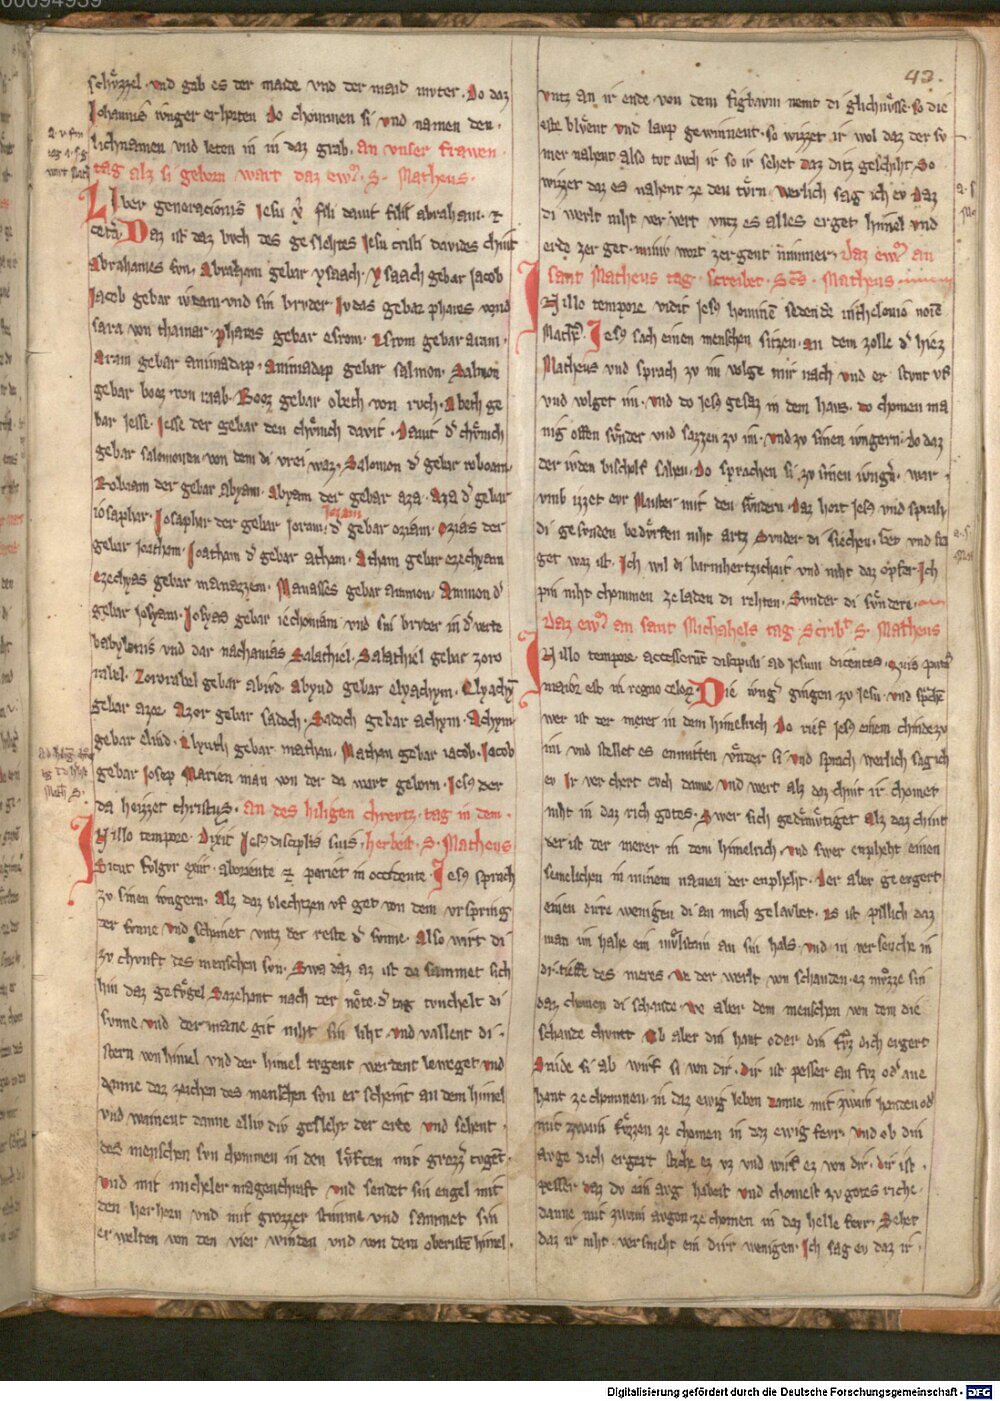 schuͤzzel vnd gab es der maide vnd der maid muter Do daz
Johannis iunger erhorten Do chommen si vnd namen den
lichnamen vnd leten in in daz grab an vnser frawen
tag alz si geborn wart daz ew S. Matheus
Liber generacionis Jesu xp̄i fili dauit filii abraham
Daz ist daz buch des geslehtes Jesu cristi dauides chint
Abrahames sun Abraham gebar ysaach Ysaach gebar Jacob
Jacob gebar iudam vnd sin bruder Judas gebar phares vnd
sara von thamar phares gebar esrom Esrom gebar aram
Aram gebar aminadap Aminadap gebar salmon Salmon
gebar booz von raab Booz gebar obeth von ruth Obeth ge
bar Jesse Jesse der gebar den chuͤnich dauit Dauit d chuͤnich
gebar salomonen von dem di vrei waz Salomon d gebar roboam
Roboam der gebar abyam abyam der gebar aza Aza d gebar
iosaphat Josaphat der gebar Joram d gebar oziam Ozias der
Joram
gebar Joatham Joatham d gebar atham Atham gebar ezechyam
Ezechyas gebar manazzem Manasses gebar ammon Ammon d
gebar Josyam Josyas gebar iechoniam vnd sin bruder in d verte
babylonis vnd dar nach Salathiel Salathiel gebar zoro
rabel Zororabel gebar abiud Abyud gebar elyachym Elyachym
gebar azor Azor gebar sadoch Sadoch gebar achym Achym
gebar eliud Elyuth gebar mathan Mathan gebar iacob Jacob
gebar Josep Marien man von der da wart geborn Jesus der
da heizzet christus an des hiligen chreutz tag in dem
In illo tempore Dixit Jesus discipulis suis herbest S. Matheus
Sicut fulgur exiit aboriente et pariet in occidente Jesus sprach
zu sinen iungern Alz daz blechtzen vf get von dem vrspring
der sunne vnd schinet vntz der reste d sunne Also wirt di
zu chunft des menschen sun Swa daz az ist da sammet sich
hin daz gefuͤgel Sazehant nach der noͤte d tag tunchelt di
sunne vnd der mane git niht sin liht vnd vallent di
stern von himel vnd der himel tugent werdent beweget vnd
danne daz zeichen des menschen sun er scheint an dem himel
vnd wainent danne elliv div gesleht der erde vnd sehent
des menschen sun chommen in den luͤften mit grozzer tugent
vnd mit micheler magenchraft vnd sendet sin engel mit
den herhorn vnd mit grozzer stimme vnd sammet sin
erwelten von den vier winden vnd von dem obersten himel
42.
vntz an ir ende von dem figbaum nemt di glichnuͤsse so die
este bluͤent vnd laup gewinnent so wizzet ir wol daz der su
mer nahent also tut auch ir so ir sehet daz ditz geschiht So
wizzet daz es nahent ze den tuͤrn werlich sag ich ev Daz
di werlt niht ver vert vntz es alles erget himel vnd
erde zer get miniv wort zergent nimmer Daz ew an
sant Matheus tag screibet Matheus
In illo tempore vidit Jesus hominem sedentem inthelonio nomine
Matheum Jesus sach einen menschen sitzen an dem zolle d hiez
Matheus vnd sprach zu im volge mir nach vnd er stunt vf
vnd volget im vnd do Jesus gesaz in dem haus do chomen ma
nig offen suͤnder vnd sazzen zu im vnd zu sinen iungern do daz
der iuden bischolf sahen Do sprachen si zu sinen iungern war
vmb izzet evr Maister mit den suͤndern Daz hort Jesus vnd sprach
di gesunden beduͤrfen niht artz Sunder di siechen Get vnd sa
get waz ist Ich wil di barmhertzichait vnd niht daz opfer Ich
pin niht chommen ze laden di rehten Sunder di suͤndere
Daz ew an sant Michahels tag Scribt S. Matheus
In illo tempore accesserunt discipuli ad Jesum dicentes Quis putas
maior est in regno celorum Die iunger gingen zu Jesu vnd sprachen
wer ist der merer in dem himelrich Do rief Jesus einem chinde zu
im vnd stellet es enmitten vnder si vnd sprach werlich sag ich
ev Ir ver chert euch danne vnd wert alz daz chint ir chomet
niht in daz rich gotes Swer sich gediemuͤtiget alz daz chint
der ist der merer in dem himelrich vnd swer enphehet einen
semelichen in minem namen der enpheht Der aber geergert
einen dirre wenigen di an mich gelaubet Es ist pillich daz
man im hahe ein mulstain an sin hals vnd in verseuche in
di tieffe des meres We der werlt von schanden ez muͤzze sin
daz chomen di schande We aber dem menschen von dem die
schande chumt Ob aber din hant oder din fuz dich ergert
Snide si ab wirf si von dir Dir ist pesser an fuz oder ane
hant ze chommen in daz ewig leben danne mit zwain henden od
mit zwain fuͤzzen ze chomen in daz ewig feur vnd ob din
auge dich ergert stiche ez vz vnd wirf ez von dir dir ist
pesser daz du ein aug habest vnd chomest zu gotes riche
danne mit zwain augen ze chomen in daz helle feur Sehet
daz ir niht versmeht ein dirr wenigen Ich sag ev daz ir
Digitalisierung gefördert durch die Deutsche Forschungsgemeinschaft - DFG